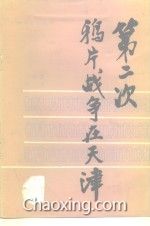 第二次
鸦片战争在天津
Chaoxing.com